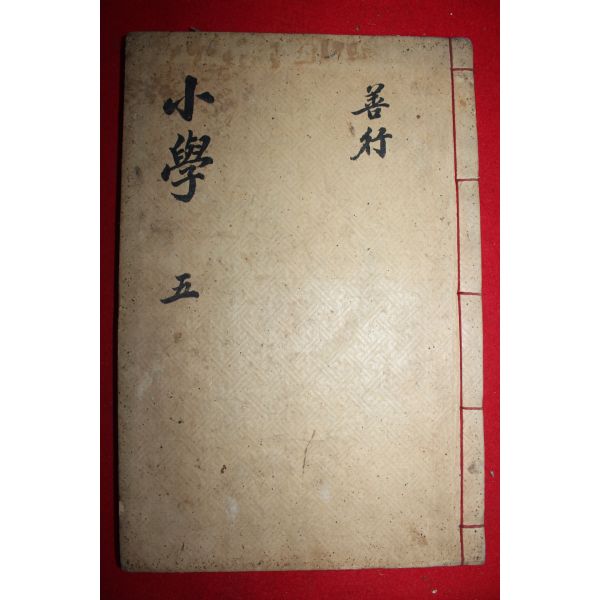 小學 五
善行